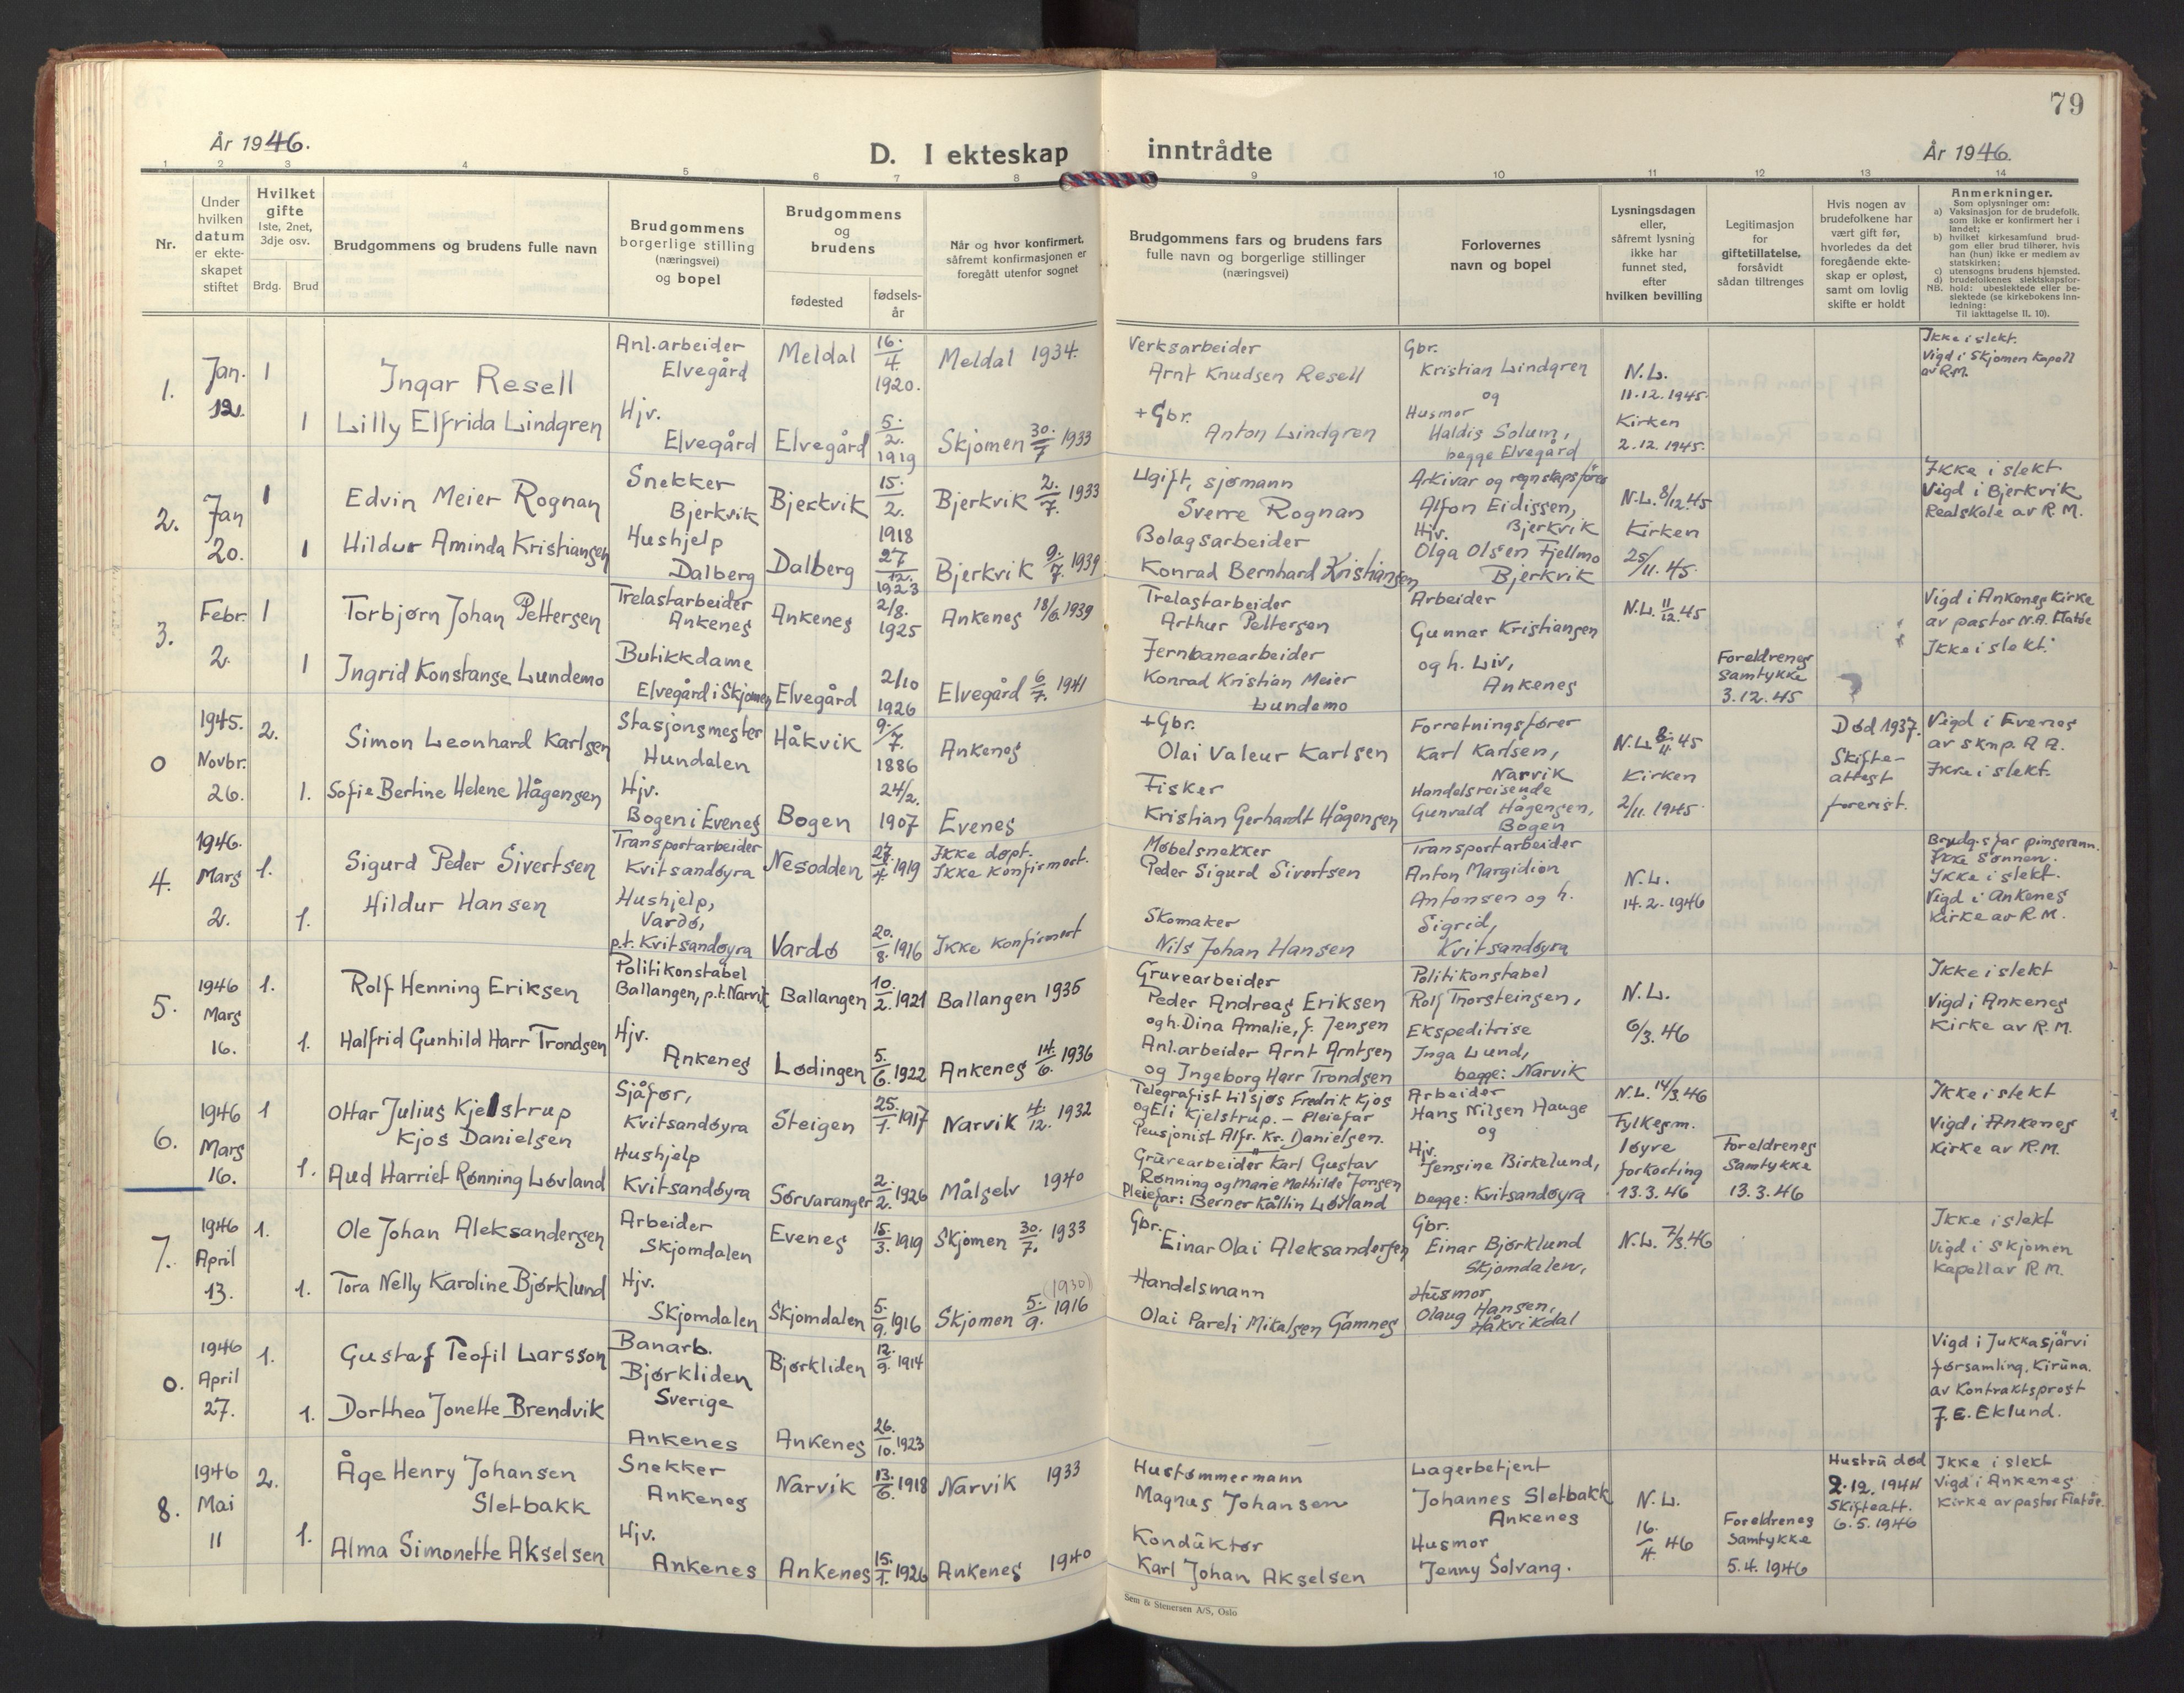 79
År 1946.
D. I ekteskap inntrådte
År 1946.
1 2 3 4 5 6 7 8 9 10 11 12 13 14
Nr.
Under hvilken datum er ekte-skapet stiftet
Hvilket gifte
1ste, 2net, 3dje osv.
Brdg. Brud
Brudgommens og brudens fulle navn
Brudgommens borgerlige stilling (næringsvei) og bopel
Brudgommens og brudens
fødested
fødsels-år
Når og hvor konfirmert, såfremt konfirmasjonen er foregått utenfor sognet
Brudgommens fars og brudens fars fulle navn og borgerlige stillinger (næringsvei)
Forlovernes navn og bopel
Lysningsdagen eller, såfremt lysning ikke har funnet sted, efter hvilken bevilling
Legitimasjon for giftetillatelse, forsåvidt sådan tiltrenges
Hvis nogen av brudefolkene har vært gift før, hvorledes da det foregående ekte-skap er opløst, samt om lovlig skifte er holdt
Anmerkninger.
Som oplysninger om:
a) Vaksinasjon for de brudefolk. som ikke er konfirmert her i landet;
b) hvilket kirkesamfund brud-gom eller brud tilhører, hvis han (hun) ikke er medlem av statskirken;
c) utensogns brudens hjemsted.
d) brudefolkenes slektskapsfor-hold: ubeslektede eller be-slektede (se kirkebokens inn-ledning:
NB. Til iakttagelse II, 10).
1. Jan. 12. 1
Ingar Resell
Anl.arbeider
Elvegård
Meldal
16./4. 1920.
Meldal 1934.
Verksarbeider
Arnt Knudsen Resell
Gbr.
Kristian Lindgren
og
N.L.
11.12.1945.
Ikke i slekt.
Vigd i Skjomen Kapell
av R.M.
1
Lilly Elfrida Lindgren
Hjv.
Elvegård
Elvegård
5./2. 1919
Skjomen 30./7 1933
+ Gbr.
Anton Lindgren
Husmor
Haldis Solum,
begge Elvegård
Kirken
2.12.1945.
2. Jan 20. 1
Edvin Meier Rognan
Snekker
Bjerkvik
Bjerkvik
15./2. 1918
Bjerkvik 2./7. 1933
Ugift, sjømann
Sverre Rognan
Arkivar og regnskapsfører
Alfon Eidissen,
Bjerkvik
N.L. 8/12.45
Ikke i slekt
Vigd i Bjerkvik
Realskole av R.M.
1
Hildur Aminda Kristiansen
Hushjelp
Dalberg
Dalberg
27/12. 1923
Bjerkvik 9./7. 1939
Bolagsarbeider
Konrad Bernhard Kristiansen
Hjv.
Olga Olsen Fjellmo
Bjerkvik
Kirken
25/11.45.
3. Febr. 2. 1
Torbjørn Johan Pettersen
Trelastarbeider
Ankenes
Ankenes
2/8. 1925
Ankenes 18/6. 1939
Trelastarbeider
Arthur Pettersen
Arbeider
Gunnar Kristiansen
N.L. 11/12. 45
Vigd i Ankenes Kirke
av pastor N.A. Flatøe
Ikke i slekt.
1
Ingrid Konstanse Lundemo
Butikkdame
Elvegård i Skjomen
Elvegård
2/10 1926
Elvegård 6/7. 1941
Jernbanearbeider
Konrad Kristian Meier
Lundemo
og h. Liv,
Ankenes
Foreldrenes
Samtykke
3.12.45
0 1945. Novbr. 26. 2.
Simon Leonhard Karlsen
Stasjonsmester
Hundalen
Håkvik
9./7. 1886
Ankenes
+ Gbr.
Olai Valeur Karlsen
Forretningsfører
Karl Karlsen,
Narvik
N.L. 8./11. 45
Død 1937.
Skifte-
attest
forevist.
Vigd i Evenes
av sknp. A A.
Ikke i slekt.
1.
Sofie Bertine Helene Hågensen
Hjv.
Bogen i Evenes
Bogen
24/2. 1907
Evenes
Fisker
Kristian Gerhardt Hågensen
Handelsreisende
Gunvald Hågensen,
Bogen
Kirken
2/11. 1945
4. 1946. Mars 2. 1.
Sigurd Peder Sivertsen
Transportarbeider
Kvitsandøyra
Nesodden
27/4. 1919
Ikke døpt.
Ikke Konfirmert.
Møbelsnekker
Peder Sigurd Sivertsen
Transportarbeider
Anton Margidion
Antonsen og h.
N.L.
14.2.1946
Brudg.s far pinsevenn.
Ikke sønnen.
Ikke i slekt.
Vigd i Ankenes
Kirke av R.M.
1.
Hildur Hansen
Hushjelp,
Vardø,
p.t. Kvitsandøyra
Vardø
20./8. 1916
Ikke Konfirmert
Skomaker
Nils Johan Hansen
Sigrid,
Kvitsandøyra
5. 1946 Mars 16. 1.
Rolf Henning Eriksen
Politikonstabel
Ballangen, p.t. Narvik
Ballangen
10./2. 1921
Ballangen 1935
Gruvearbeider
Peder Andreas Eriksen
og h. Dina Amalie, f. Jensen
Politikonstabel
Rolf Thorsteinsen,
N.L.
6/3. 46
Ikke i slekt
Vigd i Ankenes
Kirke av R.M.
1.
Halfrid Gunhild Harr Trondsen
Hjv.
Ankenes
Lødingen
5./6. 1922
Ankenes 14./6. 1936
Anl.arbeider Arnt Arntsen
og Ingeborg Harr Trondsen
Ekspeditrise
Inga Lund,
begge: Narvik
6. 1946 Mars 16. 1
Ottar Julius Kjelstrup
Kjos Danielsen
Sjåfør,
Kvitsandøyra
Steigen
25./1. 1917
Narvik 4./12. 1932
Telegrafist Lilsjøs Fredrik Kjos
og Eli Kjelstrup. - Pleiefar
Pensjonist Alfr. Kr. Danielsen.
Arbeider
Hans Nilsen Hauge
og
N.L. 14/3. 46
Ikke i slekt
Vigd i Ankenes
Kirke av R.M.
1.
Aud Harriet Rønning Løvland
Hushjelp
Kvitsandøyra
Sørvaranger
2./2. 1926
Målselv 1940
Gruvearbeider Karl Gustav
Rønning og Marie Mathilde Jensen
Pleiefar: Berner Kållin Løvland
Hjv.
Jensine Birkelund,
begge: Kvitsandøyra
Fylkesm.
løyre
forkorting
13.3.46
Foreldrenes
Samtykke
13.3.46
7. 1946 April 13. 1.
Ole Johan Aleksandersen
Arbeider
Skjomdalen
Evenes
15./3. 1919
Skjomen 30./7. 1933
Gbr.
Einar Olai Aleksandersen
Gbr.
Einar Bjørklund
Skjomdalen,
N.L. 7/3.46
Ikke i slekt
Vigd i Skjomen
Kapell av R.M.
1.
Tora Nelly Karoline Bjørklund
Hjv.
Skjomdalen
Skjomdalen
5./9. 1916
(1930)
Skjomen 5./9. 1916
Handelsmann
Olai Pareli Mikalsen Gamnes
Husmor
Olaug Hansen,
Håkvikdal
0. 1946 April 27. 1.
Gustaf Teofil Larsson
Banarb.
Bjørkliden
Sverige
Bjørkliden
12./9. 1914
Vigd i Jukkasjärvi
församling, Kiruna.
av Kontraktsprost
J.E. Eklund.
1.
Dorthea Jonette Brendvik
Ankenes
Ankenes
26./10. 1923
8. 1946 Mai 11 2.
Åge Henry Johansen
Sletbakk
Snekker
Ankenes
Narvik
13./6. 1918
Narvik 1933
Hustømmermann
Magnus Johansen
Lagerbetjent
Johannes Sletbakk
Ankenes
N.L.
16./4. 46
Hustru død
2.12.1944
Skifteatt.
6.5.1946
Ikke i slekt
Vigd i Ankenes
Kirke av pastor Flatøe.
1.
Alma Simonette Akselsen
Hjv.
Ankenes
Ankenes
15./1. 1926
Ankenes 1940
Konduktør
Karl Johan Akselsen
Husmor
Jenny Solvang.
Foreldrenes
Samtykke
5.4.1946
Sem & Stenersen A/S, Oslo